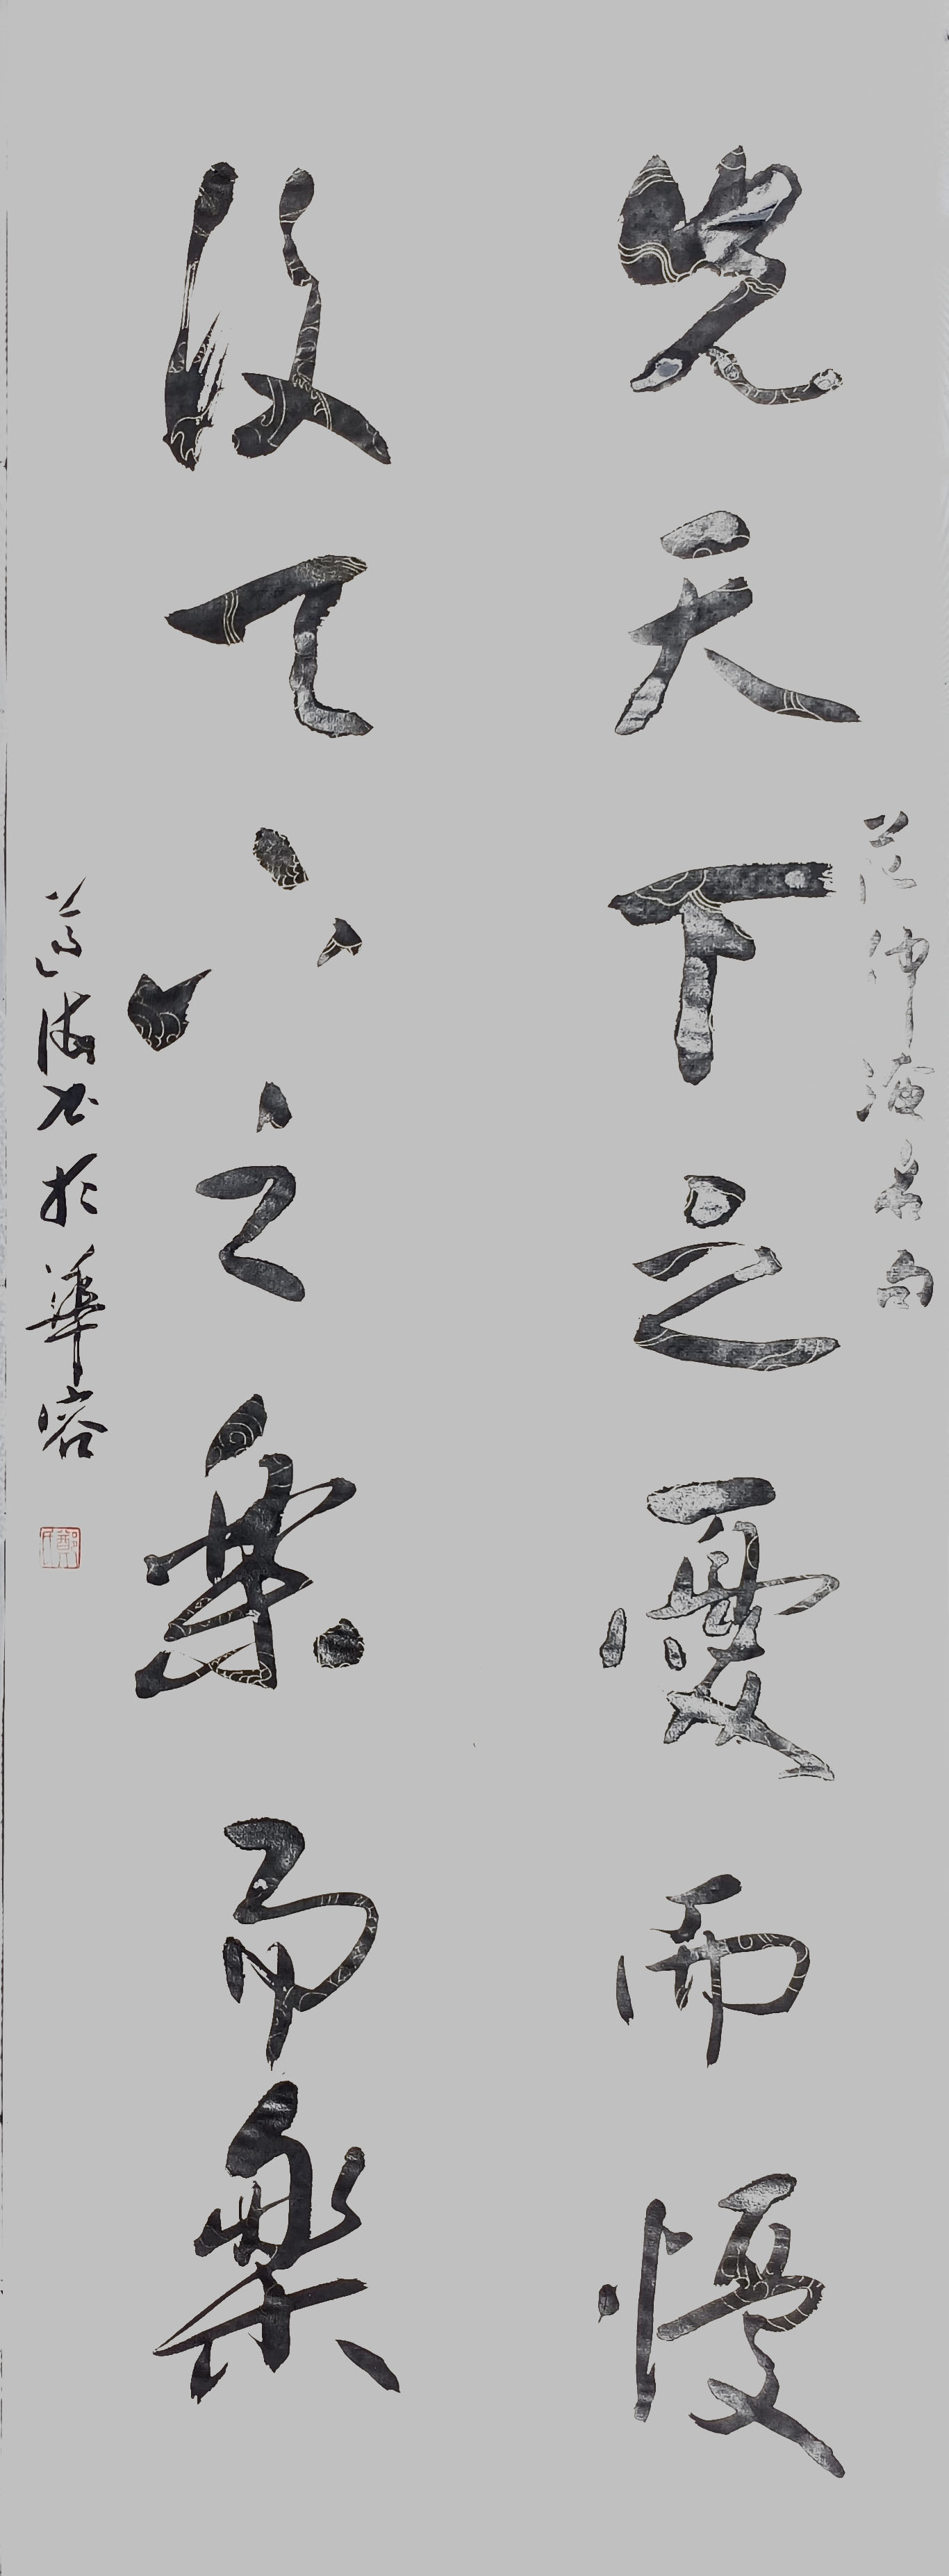 范仲淹名句
先天下之憂而憂
後天下之樂而樂
海書於華容